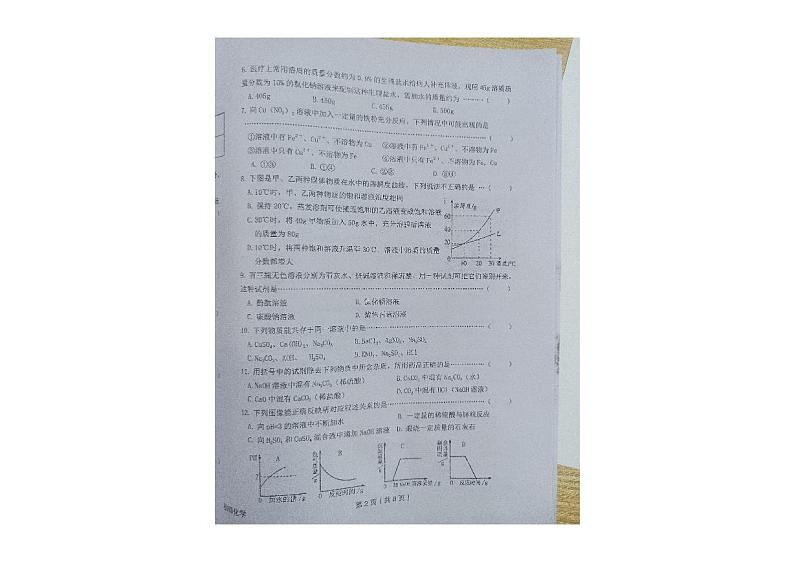 6. 医疗上常用溶质的质量分数约为 0.9%的生理盐水给病人补充体液，现用 45g 溶质质
量分数为 10%的氯化钠溶液来配制这种生理盐水，需加水的质量约为 ………（ ）
A. 405g B. 450g C. 455g D. 500g
7. 向 Cu（NO₃）₂ 溶液中加入一定量的铁粉充分反应，下列情况中可能出现的是
……（ ）
①溶液中有 Fe²⁺、Cu²⁺，不溶物为 Cu ②溶液中有 Fe²⁺、Cu²⁺，不溶物为 Fe
③溶液中只有 Cu²⁺，不溶物为 Fe ④溶液中只有 Fe²⁺，不溶物为 Fe、Cu
A. ①③ B. ①④ C. ②③ D. ②④
8. 下图是甲、乙两种固体物质在水中的溶解度曲线，下列说法不正确的是 …（ ）
A. 10℃时，甲、乙两种物质的饱和溶液浓度相同
B. 保持 20℃，蒸发溶剂可使接近饱和的乙溶液变成饱和溶液
C. 30℃时，将 40g 甲物质加入 50g 水中，充分溶解后溶液
的质量为 80g
D. 10℃时，将两种饱和溶液升温至 30℃，溶液中溶质的质量
分数都增大
溶解度/g
甲
乙
60
40
20
0 10 20 30 温度/℃
9. 有三瓶无色溶液分别为石灰水、
用一种试剂可把它们鉴别开来，
这种试剂是……（ ）
A. 酚酞溶液 B. 氯化钠溶液
C. 碳酸钠溶液 D. 紫色石蕊溶液
10. 下列物质能共存于同一溶液中的是……（ ）
A. CuSO₄、Ca(OH)₂、Na₂CO₃ B. BaCl₂、AgNO₃、Na₂SO₄
C. Na₂CO₃、KOH、H₂SO₄ D. KNO₃、Na₂SO₄、HCl
11. 用括号中的试剂除去下列物质中所含杂质，所用药品正确的是……（ ）
A. NaOH 溶液中混有 Na₂CO₃（稀硫酸） B. CaCO₃ 中混有 Na₂CO₃（水）
C. CaO 中混有 CaCO₃（稀盐酸） D. CO₂ 中混有 HCl（NaOH 溶液）
12. 下列图像能正确反映所对应叙述关系的是……（ ）
A. 向 pH=3 的溶液中不断加水 B. 一定量的稀硫酸与锌粒反应
C. 向 H₂SO₄ 和 CuSO₄ 混合液中滴加 NaOH 溶液 D. 煅烧一定质量的石灰石
PH A 7 0 加水的量/g
B 0 反应时间/g
C 0 加 NaOH 溶液质量/g
D 0 反应时间/g
第 2 页（共 8 页）